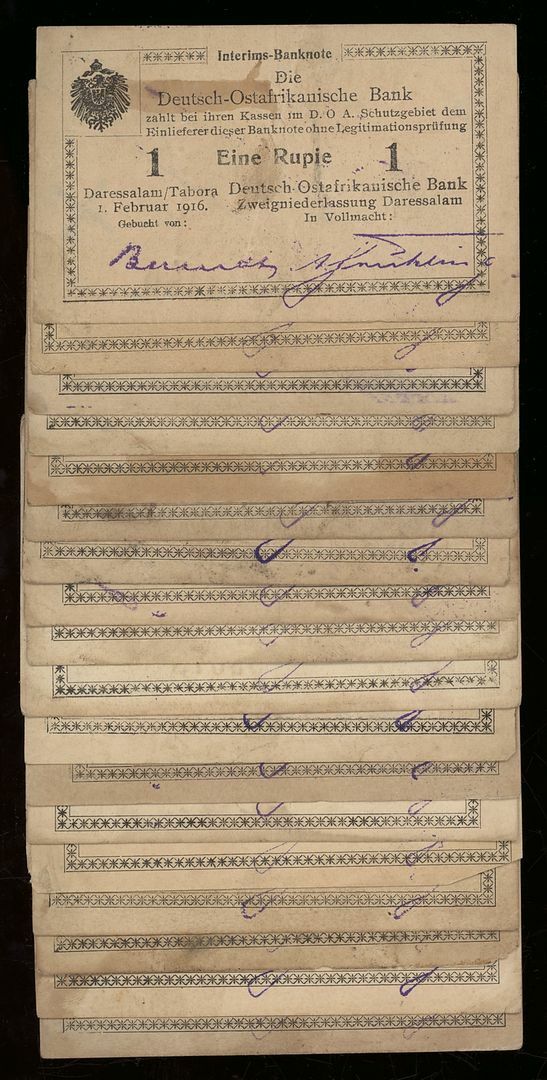 Interims-Banknote
Die
Deutsch-Ostafrikanische Bank
zahlt bei ihren Kassen im D. O A. Schutzgebiet dem
Einlieferer dieser Banknote ohne Legitimationsprüfung
1 Eine Rupie 1
Daressalam/Tabora Deutsch-Ostafrikanische Bank
1. Februar 1916. Zweigniederlassung Daressalam
Gebucht von: In Vollmacht: